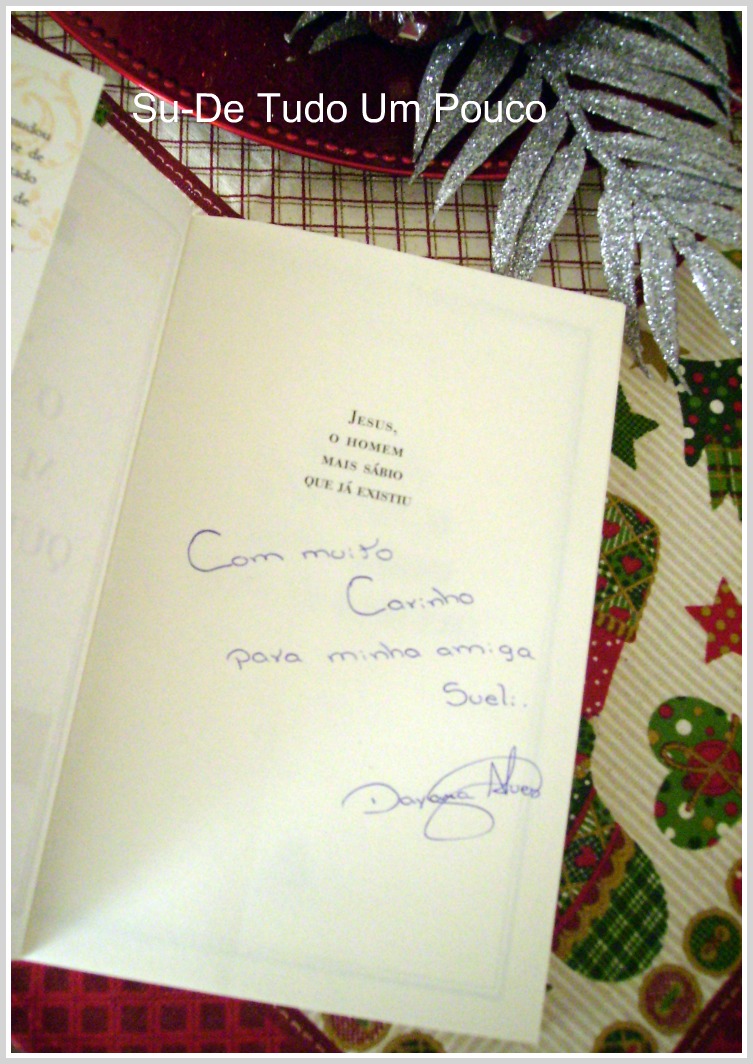 Su-De Tudo Um Pouco
JESUS,
O HOMEM
MAIS SÁBIO
QUE JÁ EXISTIU
Com muito
Carinho
para minha amiga
Sueli.
Dayana Alves
de
de